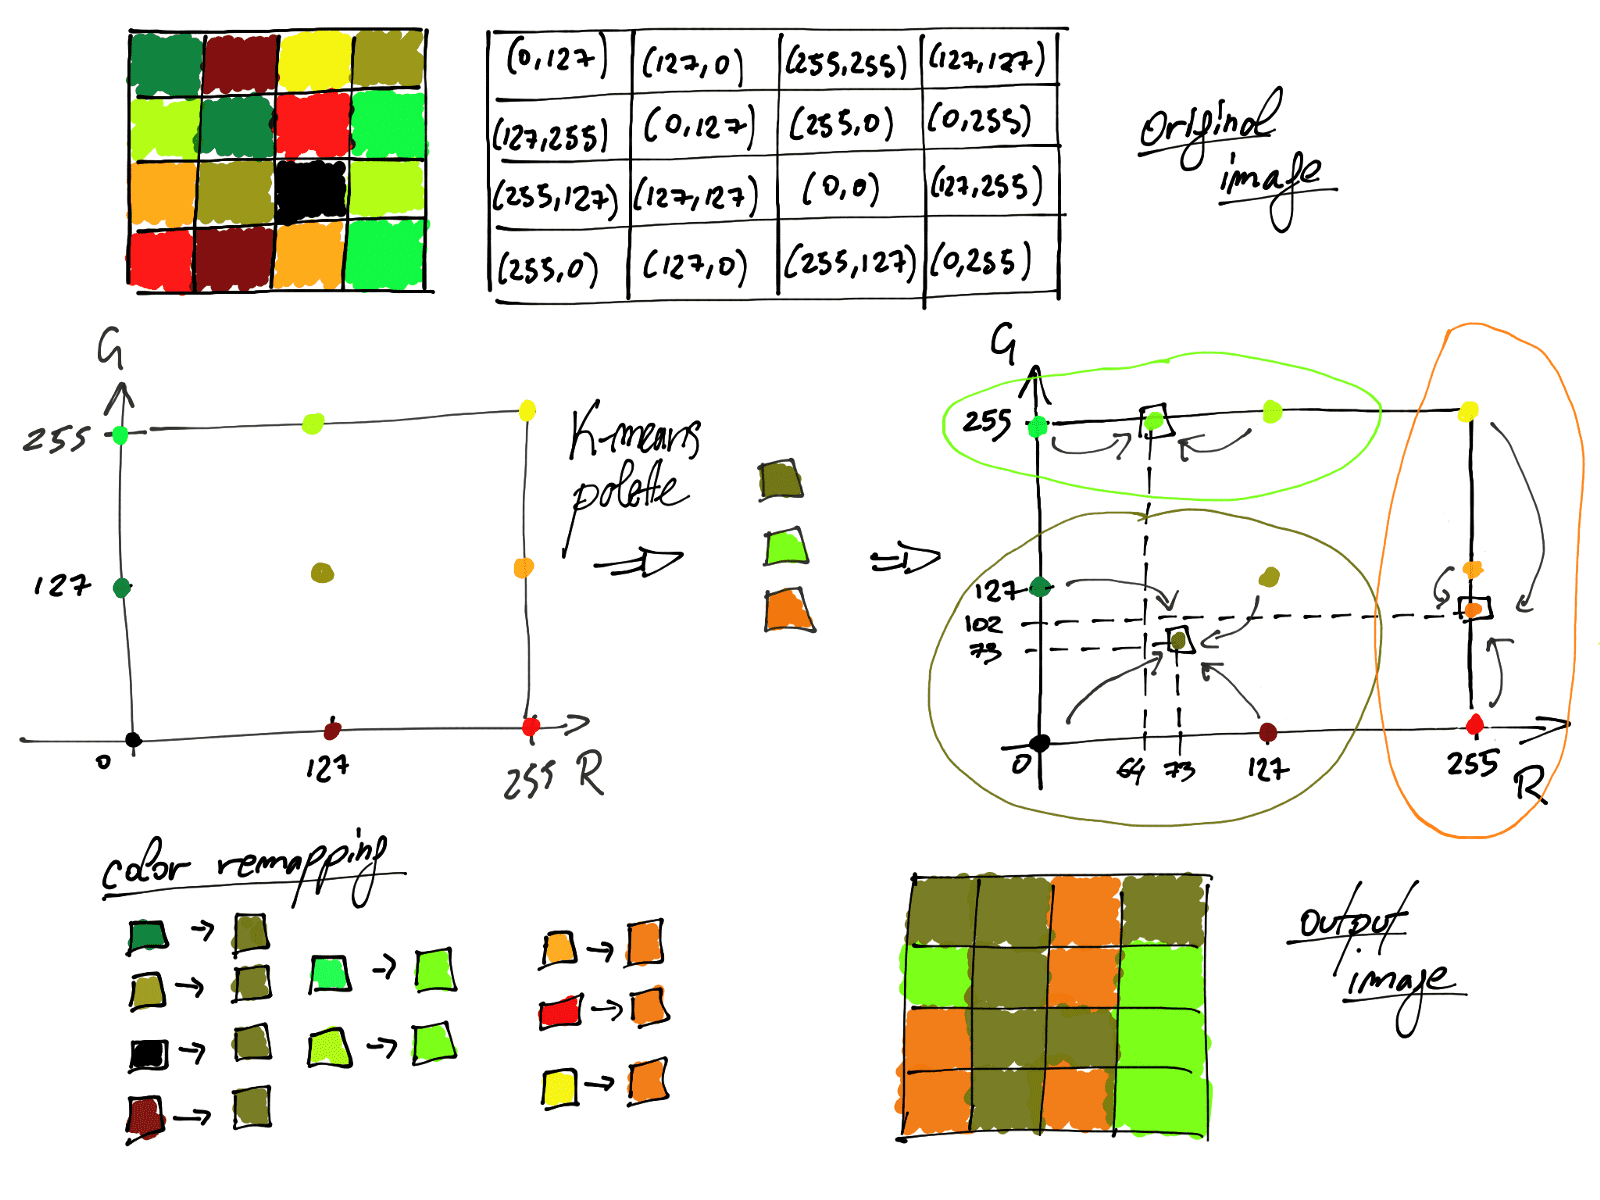 (0,127) (127,0) (255,255) (127,127)
(127,255) (0,127) (255,0) (0,255)
(255,127) (127,127) (0,0) (127,255)
(255,0) (127,0) (255,127) (0,255)
Original
image
G
255
127
0
127
255 R
K-means
palette
G
255
127
102
73
0
64
73
127
255
R
color remapping
output
image